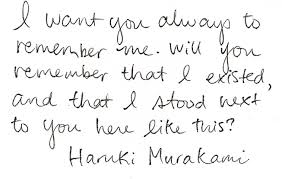 I want you always to
remember me. Will you
remember that I existed,
and that I stood next
to you here like this?
Haruki Murakami